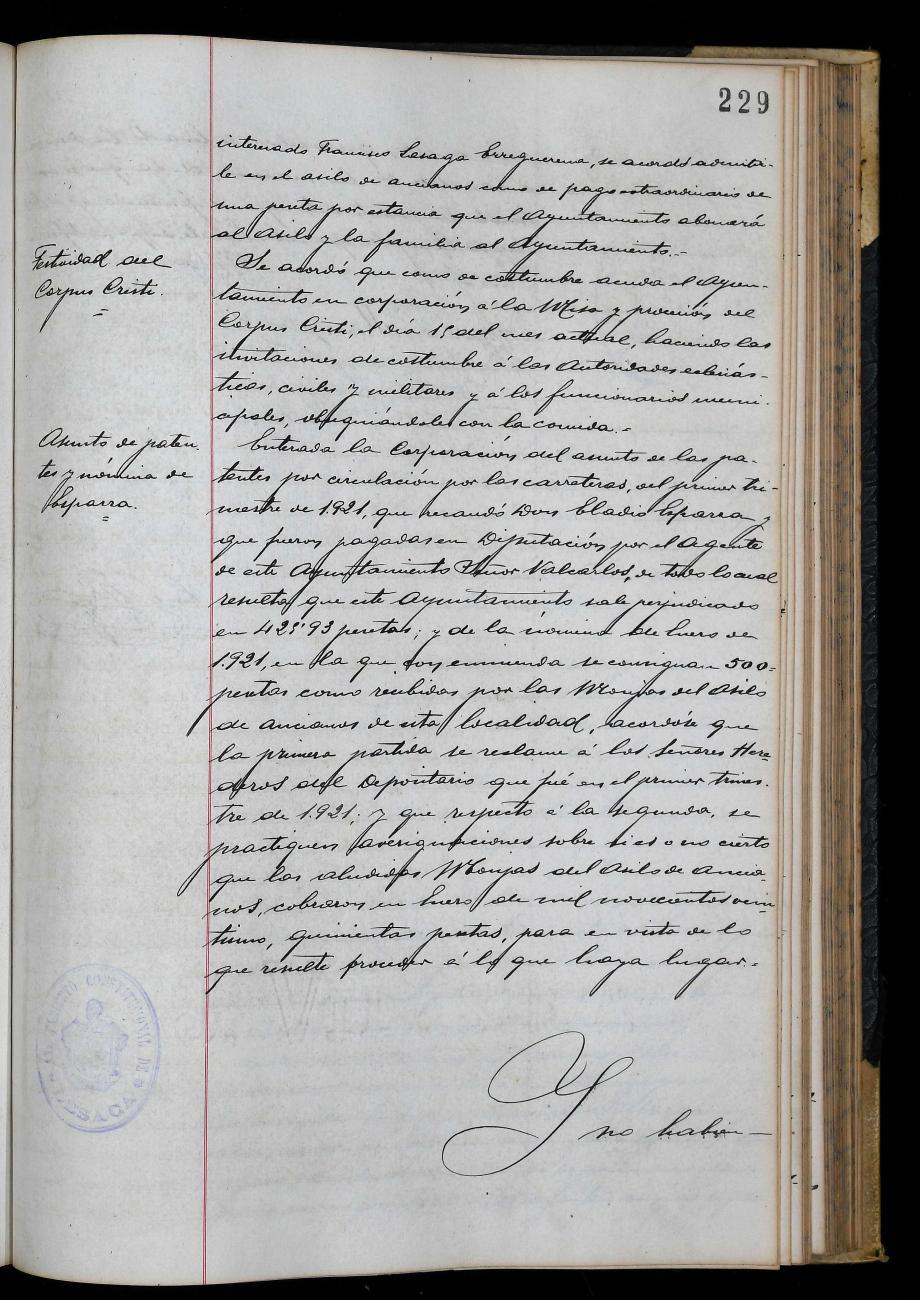 229
interesado Francisco Lasaga Erreguerena, se acordó admitir-
le en el asilo de ancianos como de pago extraordinario de
una peseta por estancia que el Ayuntamiento abonará
al Asilo y la familia al Ayuntamiento.-
Festividad del
Corpus Cristi.
Se acordó que como de costumbre acuda el Ayun-
tamiento en corporación á la Misa y procesión del
Corpus Cristi, el día 15 del mes actual, haciendo las
invitaciones de costumbre á las Autoridades eclesiás-
ticas, civiles y militares y á los funcionarios muni-
cipales, obsequiándoles con la comida.-
Asunto de paten-
tes y nómina de
Esparza.
Enterada la Corporación del asunto de las pa-
tentes por circulación por las carreteras, del primer tri-
mestre de 1.921, que recaudó Don Eladio Esparza y
que fueron pagadas en Diputación por el Agente
de este Ayuntamiento Señor Valcarlos, de todo lo cual
resulta que este Ayuntamiento sale perjudicado
en 425'93 pesetas; y de la nómina de Enero de
1.921, en la que con enmienda se consignan 500=
pesetas como recibidas por las Monjas del Asilo
de ancianos de esta localidad, acordóse que
la primera partida se reclame á los señores Here-
deros del Depositario que fué en el primer trimes-
tre de 1.921; y que respecto á la segunda, se
practiquen averiguaciones sobre si es o no cierto
que las aludidas Monjas del Asilo de Ancia-
nos, cobraron en Enero de mil novecientos vein-
tiuno, quinientas pesetas, para en vista de lo
que resulte proceder á lo que haya lugar.-
CONSTITUCIONAL DE
LESACA
Y no habien-